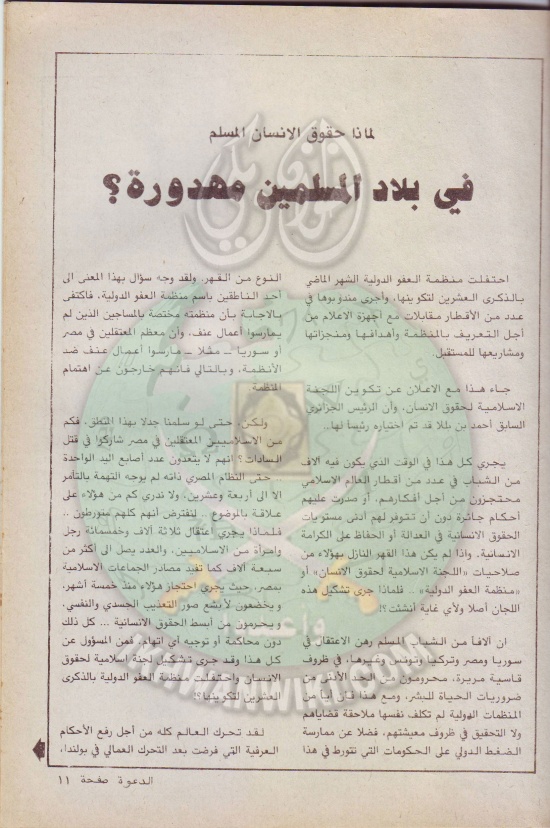 لماذا حقوق الانسان المسلم
في بلاد المسلمين مهدورة؟
احتفلت منظمة العفو الدولية الشهر الماضي
بالذكرى العشرين لتكوينها، وأجرى مندوبوها في
عدد من الأقطار مقابلات مع أجهزة الاعلام من
أجل التعريف بالمنظمة وأهدافها ومنجزاتها
ومشاريعها للمستقبل.
جاء هذا مع الاعلان عن تكوين اللجنة
الاسلامية لحقوق الانسان، وأن الرئيس الجزائري
السابق أحمد بن بللا قد تم اختياره رئيسا لها..
يجري كل هذا في الوقت الذي يكون فيه آلاف
من الشباب في عدد من أقطار العالم الاسلامي
محتجزون من أجل أفكارهم، أو صدرت عليهم
أحكام جائرة دون أن تتوفر لهم أدنى مستويات
الحقوق الانسانية في العدالة أو الحفاظ على الكرامة
الانسانية. واذا لم يكن هذا القهر النازل بهؤلاء من
صلاحيات «اللجنة الاسلامية لحقوق الانسان» أو
«منظمة العفو الدولية».. فلماذا جرى تشكيل هذه
اللجان أصلا ولأي غاية أنشئت؟!
ان آلافا من الشباب المسلم رهن الاعتقال في
سوريا ومصر وتركيا وتونس وغيرها، في ظروف
قاسية مريرة، محرومون من الحد الأدنى من
ضروريات الحياة للبشر، ومع هذا فان أيا من
المنظمات الدولية لم تكلف نفسها ملاحقة قضاياهم
ولا التحقيق في ظروف معيشتهم، فضلا عن ممارسة
الضغط الدولي على الحكومات التي تتورط في هذا
النوع من القهر. ولقد وجه سؤال بهذا المعنى الى
أحد الناطقين باسم منظمة العفو الدولية، فاكتفى
بالاجابة بأن منظمته مختصة بالمساجين الذين لم
يمارسوا أعمال عنف، وأن معظم المعتقلين في مصر
أو سوريا – مثلا – مارسوا أعمال عنف ضد
الأنظمة، وبالتالي فانهم خارجون عن اهتمام
المنظمة
ولكن، حتى لو سلمنا جدلا بهذا المنطق، فكم
من الاسلاميين المعتقلين في مصر شاركوا في قتل
السادات؟ انهم لا يتعدون عدد أصابع اليد الواحدة
.. حتى النظام المصري ذاته لم يوجه التهمة بالتآمر
الا الى أربعة وعشرين، ولا ندري كم من هؤلاء على
علاقة بالموضوع .. لنفترض أنهم كلهم متورطون ..
فلماذا يجري اعتقال ثلاثة آلاف وخمسمائة رجل
وامرأة من الاسلاميين، والعدد يصل الى أكثر من
سبعة آلاف كما تفيد مصادر الجماعات الاسلامية
بمصر، حيث يجري احتجاز هؤلاء منذ خمسة أشهر،
ويخضعون لأبشع صور التعذيب الجسدي والنفسي،
ويحرمون من أبسط الحقوق الانسانية ... كل ذلك
دون محاكمة أو توجيه أي اتهام. فمن المسؤول عن
كل هذا وقد جرى تشكيل لجنة اسلامية لحقوق
الانسان واحتفلت منظمة العفو الدولية بالذكرى
العشرين لتكوينها؟!
لقد تحرك العالم كله من أجل رفع الأحكام
العرفية التي فرضت بعد التحرك العمالي في بولندا،
الدعوة صفحة ١١